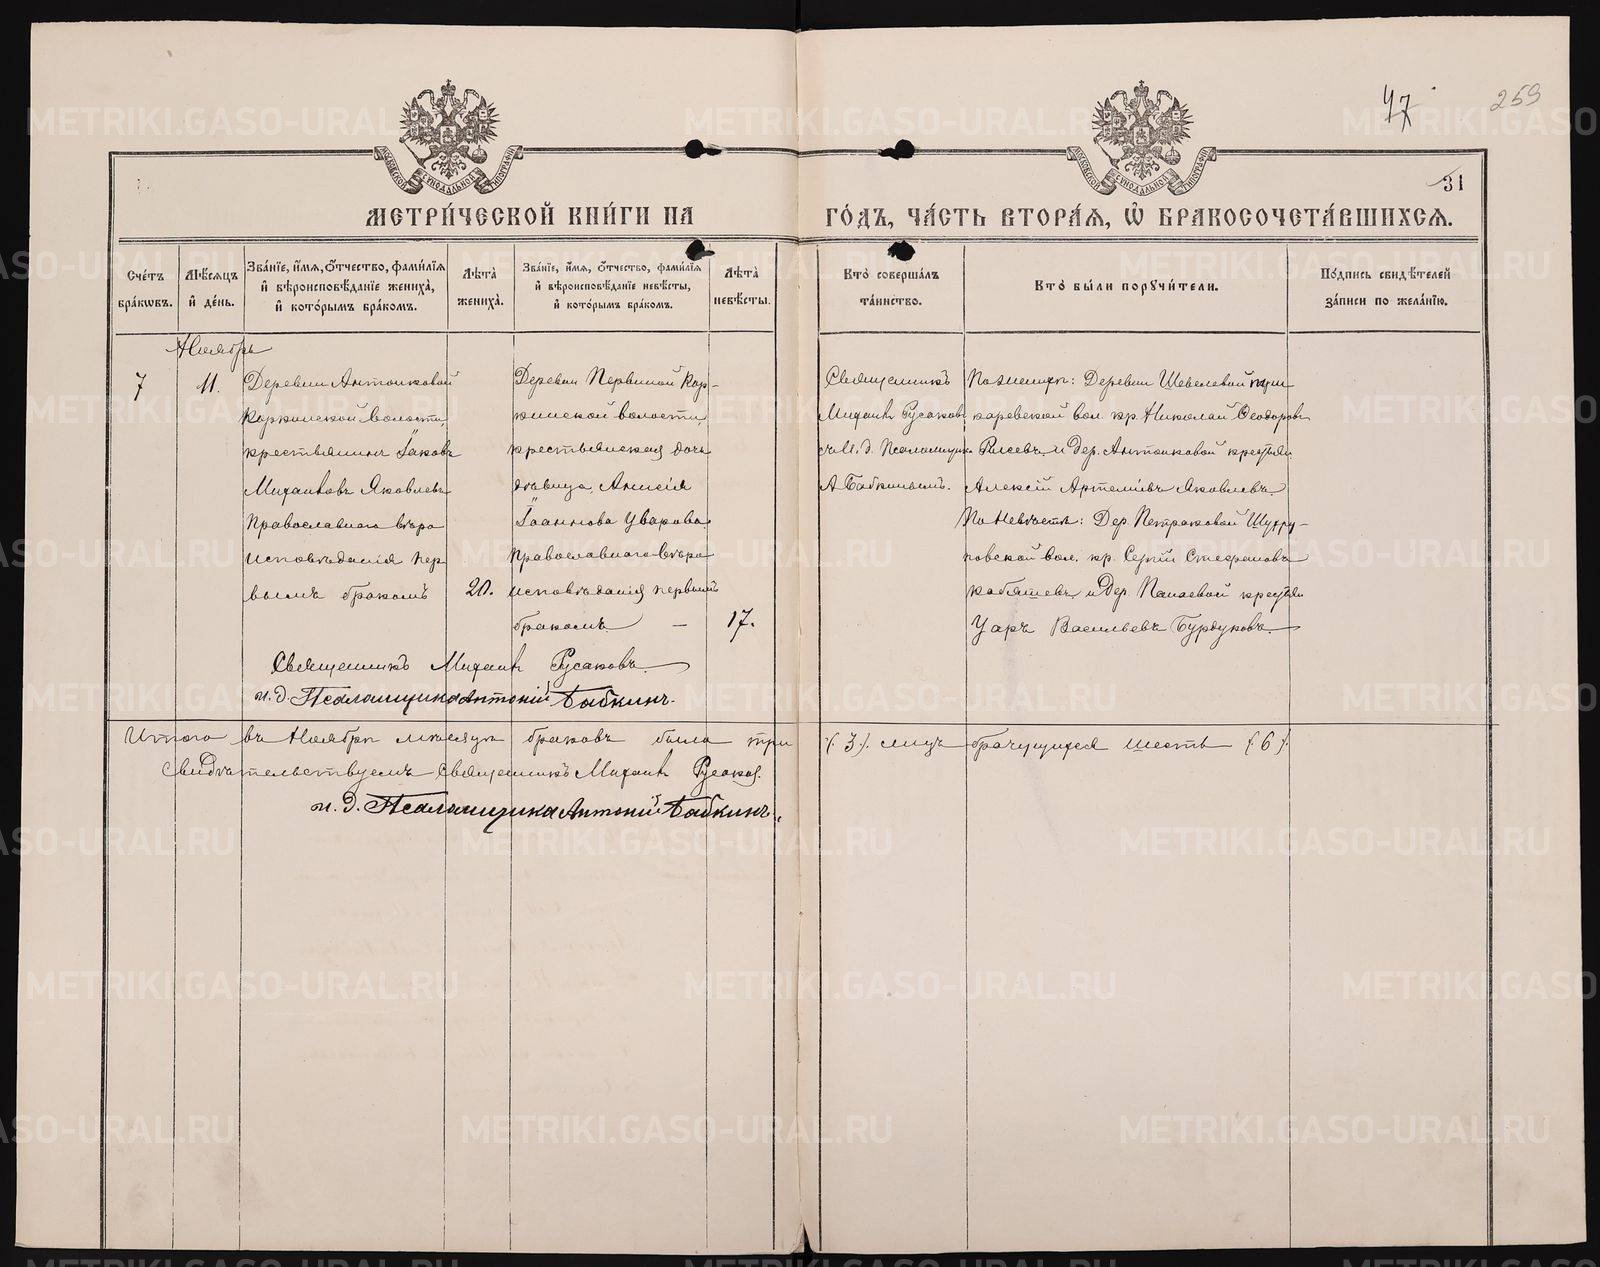 47
259
31
МЕТРИ́ЧЕСКОЙ КНИ́ГИ НА ГО́ДЪ, ЧА́СТЬ ВТОРА́Я, Ѽ БРАКОСОЧЕТА́ВШИХСЯ.
Сче́тъ бра́кѡвъ.
Мѣ́сяцъ и҆ де́нь.
Зва́нїе, и҆́мя, ѻ҆́тчество, фами́лїя и҆ вѣроисповѣ́данїе жениха̀, и҆ кото́рымъ бра́комъ.
Лѣ́та̀ жениха̀.
Зва́нїе, и҆́мя, ѻ҆́тчество, фами́лїя и҆ вѣроисповѣ́данїе невѣ́сты, и҆ кото́рымъ бра́комъ.
Лѣ́та̀ невѣ́сты.
Кто̀ соверша́лъ та́инство.
Кто̀ бы́ли порꙋчи́тели.
По́дпись свидѣ́телей за́писи по жела́нїю.
Ноябрь
7
11.
Деревни Антоновой
крестьянинъ Іаковъ
Михаиловъ Яковлевъ
православнаго вѣро
исповѣданія пер
вымъ бракомъ
20.
Деревни Первиной Кор-
кинской волости,
крестьянская дочь
дѣвица, Анисія
Іоаннова Уварова
православнаго вѣро
исповѣданія первымъ
бракомъ —
17.
Священникъ
Михаилъ Русаковъ
съ И. д. Псаломщика
А Бабкинымъ.
По женихѣ: Деревни Шевелевой
вол. кр. Николай Ѳеодоровъ
и Дер. Антоновой крестьян
Алексій Артеміевъ Яковлевъ.
По Невѣстѣ: Дер. Петраковой
вол. кр. Сергій Стефановъ
и Дер. крестьян
Уаръ Васильевъ Бурдуковъ.
Священникъ Михаилъ Русаковъ.
и. д. Псаломщика Антоній Бабкинъ.
Итого въ Ноябрѣ мѣсяцѣ браковъ было три (3) лицъ брачущихся шесть (6)
Свидѣтельствуемъ Священникъ Михаилъ Русаковъ.
и. д. Псаломщика Антоній Бабкинъ.
METRIKI.GASO-URAL.RU